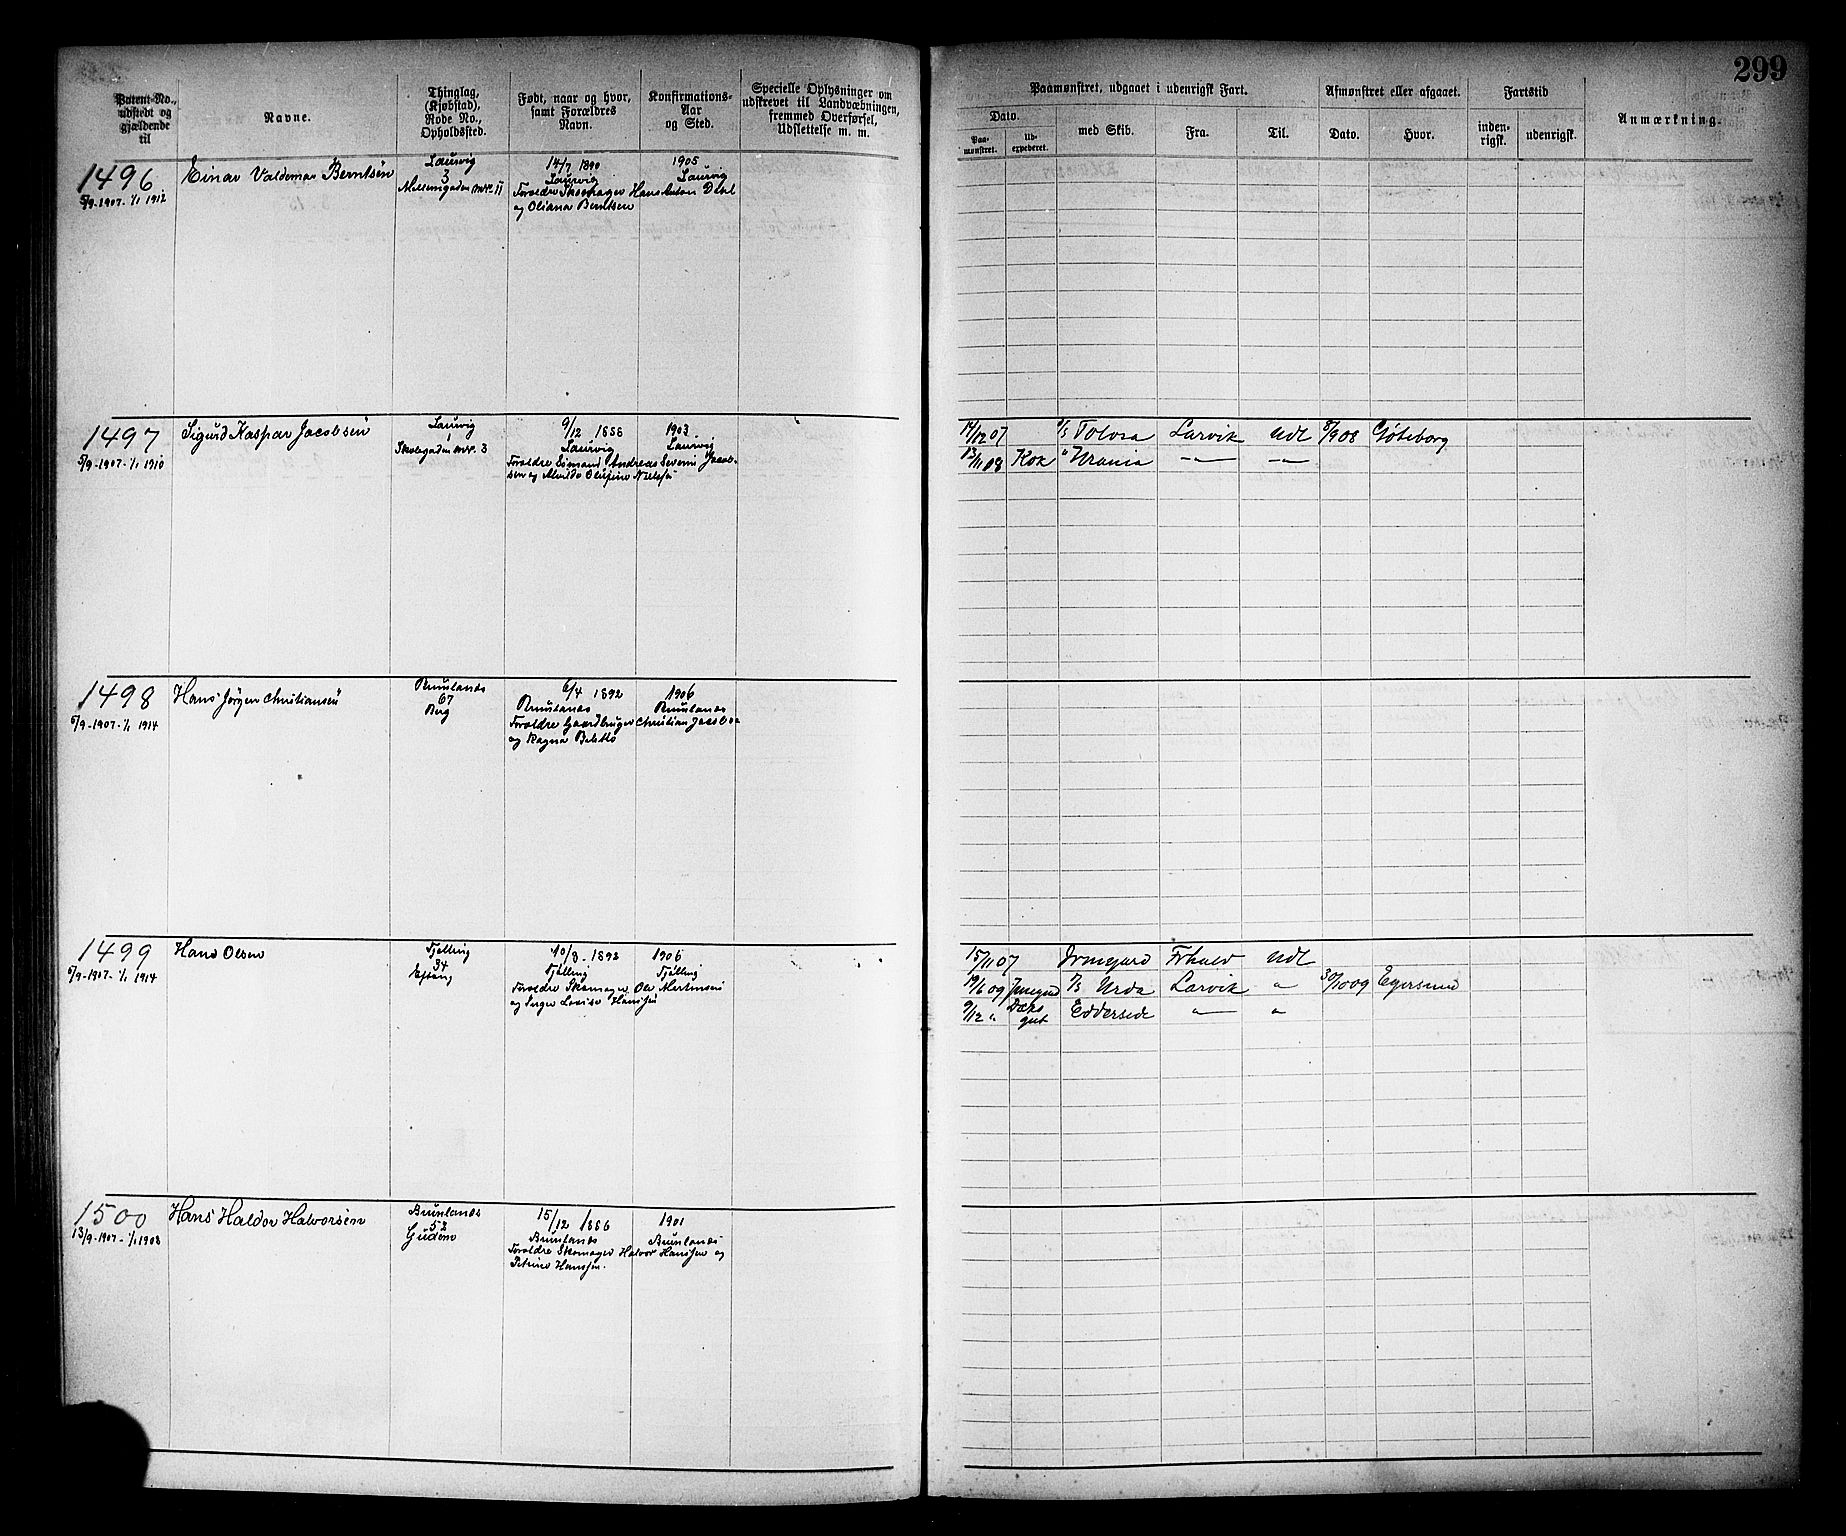 299
Patent-No., udstedt og gjældende til
Navne.
Thinglag, (Kjøbstad), Rode No., Opholdssted.
Født, naar og hvor, samt Forældres Navn.
Konfirmations-Aar og Sted.
Specielle Oplysninger om udskrevet til Landvæbningen, fremmed Overførsel, Udslettelse m. m.
Paamønstret, udgaaet i udenrigsk Fart.
Afmønstret eller afgaaet.
Fartstid
Anmærkning.
Dato.
Paa-mønstret.
Ud-expederet.
med Skib.
Fra.
Til.
Dato.
Hvor.
inden-rigsk.
udenrigsk.
1496
5/9-1907-1/1 1912
Einar Valdemar Berntsen
Laurvig
3
14/7 1890
Laurvig
1905
Laurvig
Forældre Skomager Hans Anton Dahl
og Oliana Berntsen
1497
5/9-1907-1/1 1910
Sigurd Kaspar Jacobsen
Laurvig
1
Skolegaden No. 3
9/12 1888
Laurvig
1903
Laurvig
Forældre Sømand Andreas Severin Jacob-
sen og Alvilde Nielsen
14/12 07 Tolosa Larvik Udl 8/9 08 Gøteborg
13/11 08 Kok " Urania -"- -"-
1498
6/9-1907-1/1 1914
Hans Jörgen Christiansen
Brunlanes
67
Berg
6/4 1892
Brunlanes
1906
Brunlanes
Forældre Gaardbruger Christian Jacobsen
og Ragna
1499
6/9-1907-1/1 1914
Hans Olsen
Tjølling
34
10/3-1892
Tjølling
1906
Tjølling
Forældre Skomager Ole Martinsen
og Louise Hansen
15/11 07 Frhald Udl
19/6 09 Jungmd Urda Larvik " 30/10 09 Egersund
9/12 " Dæksgut Edderside -"- "
1500
13/9-1907-1/1 1908
Hans Haldor Halvorsen
Brunlanes
52
Gudem
15/12 1886
Brunlanes
1901
Brunlanes
Forældre Skomager Halvor Hanssen og
Petrine Hanssen.